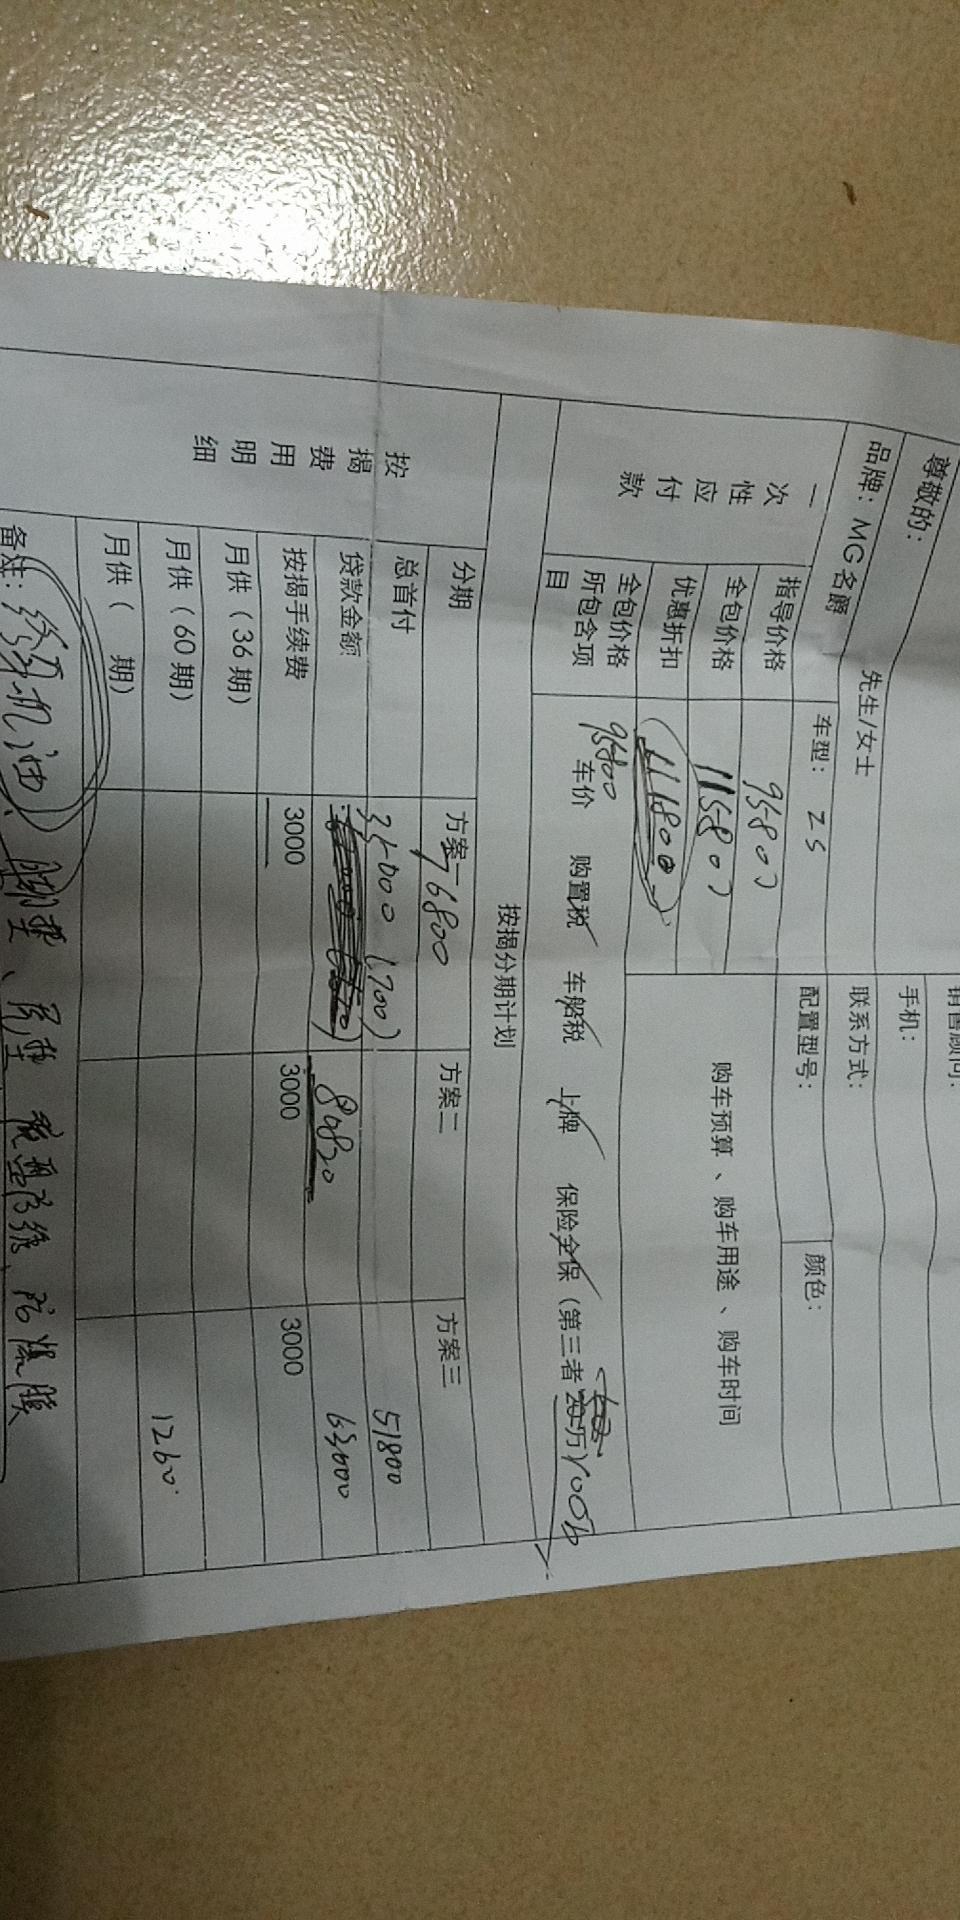 尊敬的： 先生/女士
手机：
品牌：MG名爵
联系方式：
车型：ZS
配置型号：
颜色：
一次性应付款
指导价格 95800
全包价格 115800
优惠折扣 111800
购车预算、购车用途、购车时间
全包价格所包含项目
95800
车价 购置税 车船税 上牌 保险全保（第三者 万）100万
按揭分期计划
按揭费用明细
分期 方案一 方案二 方案三
76800
总首付 35000 51800
贷款金额 63000
按揭手续费 3000 3000 3000
月供（36期）
月供（60期） 1260
月供（ 期）
备注： 机油、脚垫、尾垫 底盘 防爆膜